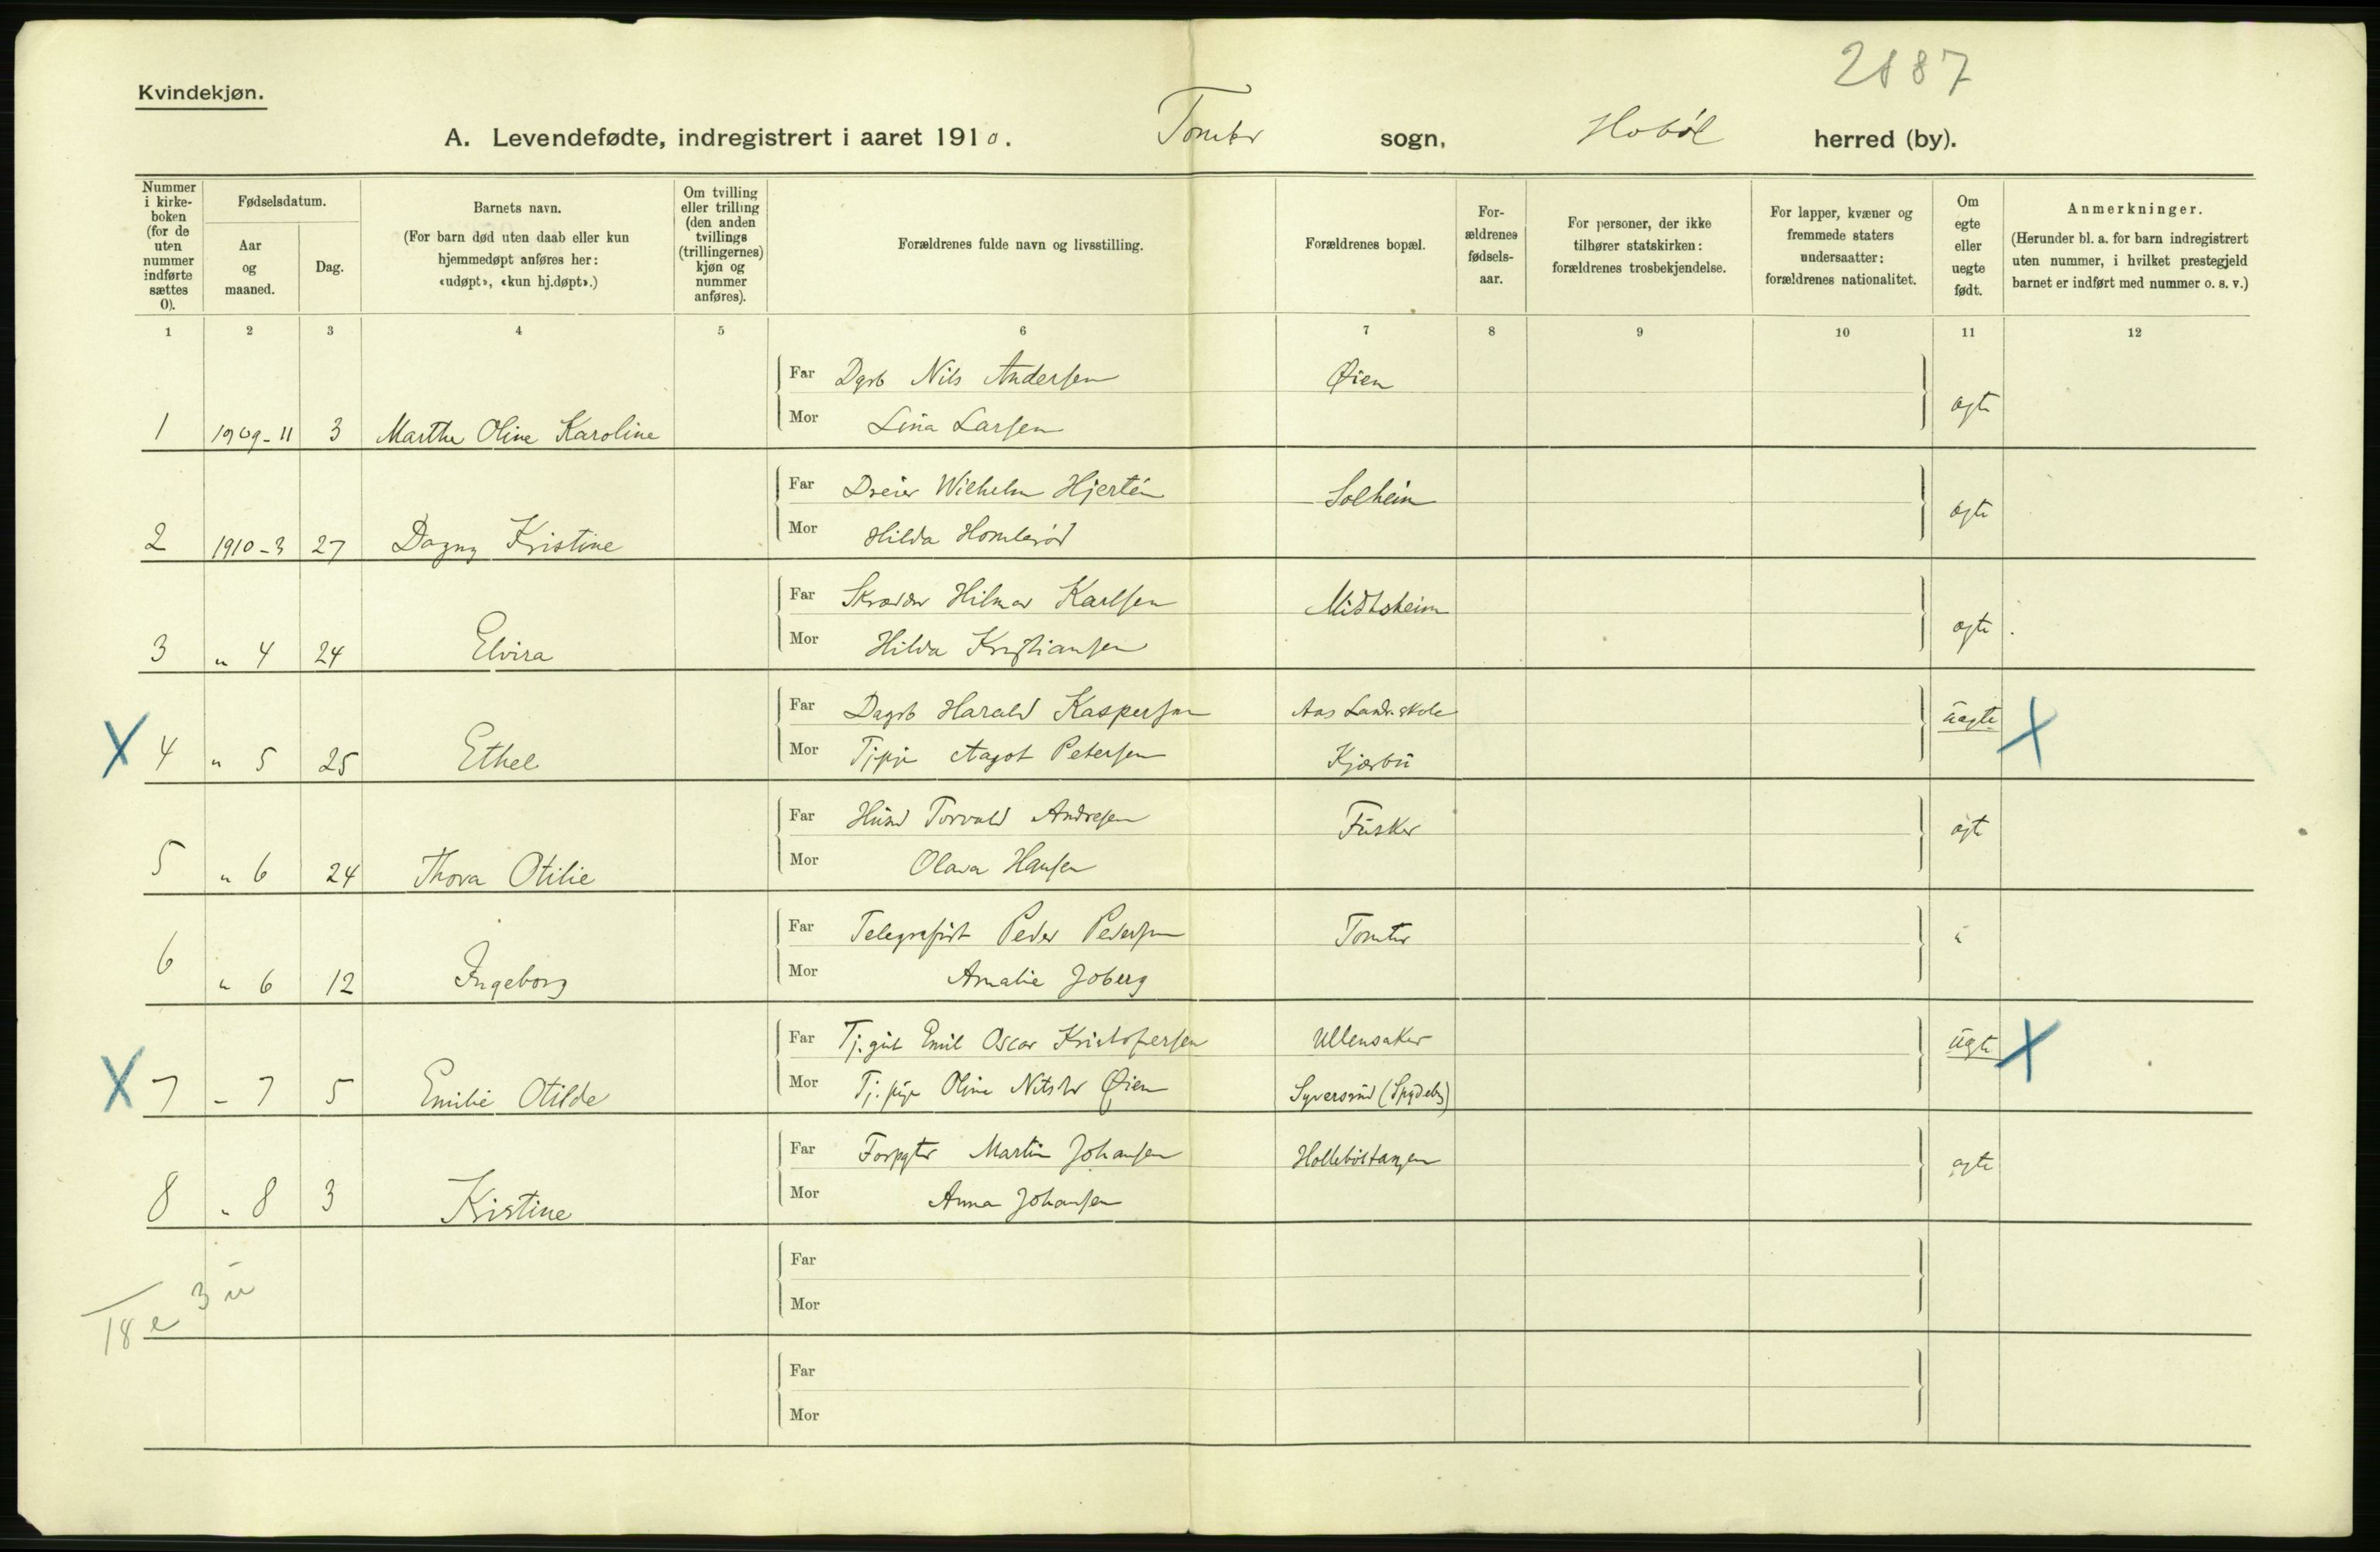 2887
Kvindekjøn.
A. Levendefødte, indregistrert i aaret 1910. Tomter sogn, Hobøl herred (by).
Nummer i kirke-boken (for de uten nummer indførte sættes 0).
Fødselsdatum.
Aar og maaned.
Dag.
Barnets navn.
(For barn død uten daab eller kun hjemmedøpt anføres her: «udøpt», «kun hj.døpt».)
Om tvilling eller trilling (den anden tvillings (trillingernes) kjøn og nummer anføres).
Forældrenes fulde navn og livsstilling.
Forældrenes bopæl.
For-ældrenes fødsels-aar.
For personer, der ikke tilhører statskirken: forældrenes trosbekjendelse.
For lapper, kvæner og fremmede staters undersaatter: forældrenes nationalitet.
Om egte eller uegte født.
Anmerkninger.
(Herunder bl. a. for barn indregistrert uten nummer, i hvilket prestegjeld barnet er indført med nummer o. s. v.)
1 2 3 4 5 6 7 8 9 10 11 12
Far Dgrb Nils Andersen Øien
1 1909-11 3 Marthe Oline Karoline Mor Lina Larsen ægte
Far Dreier Wilhelm Hjertén Solheim
2 1910-3 27 Dagny Kristine Mor Hilda ægte
Far Skræder Hilmar Karlsen Midtsheim
3 " 4 24 Elvira Mor Hilda Kristiansen ægte
Far Dagrb Harald Kaspersen Aas Landr.skole uægte X
X 4 " 5 25 Ethel Mor Tjpije Aagot Petersen Kjærbu
Far Husm Torvald Andresen Fusker
5 " 6 24 Thora Otilie Mor Olava Hansen ægt
Far Telegrafist Peder Pedersen Tomter "
6 " 6 12 Ingeborg Mor Amalie Joberg
Far Tj.gut Emil Oscar Kristofersen Ullensaker uægte X
X 7 - 7 5 Emilie Otilde Mor Tj.pije Oline Nilsdr Øien Syversrud (Spydebg)
Far Forpgter Martin Johansen Hallebøltangen ægte
8 " 8 3 Kristine Mor Anna Johansen
3 u
18 e
Far
Mor
Far
Mor